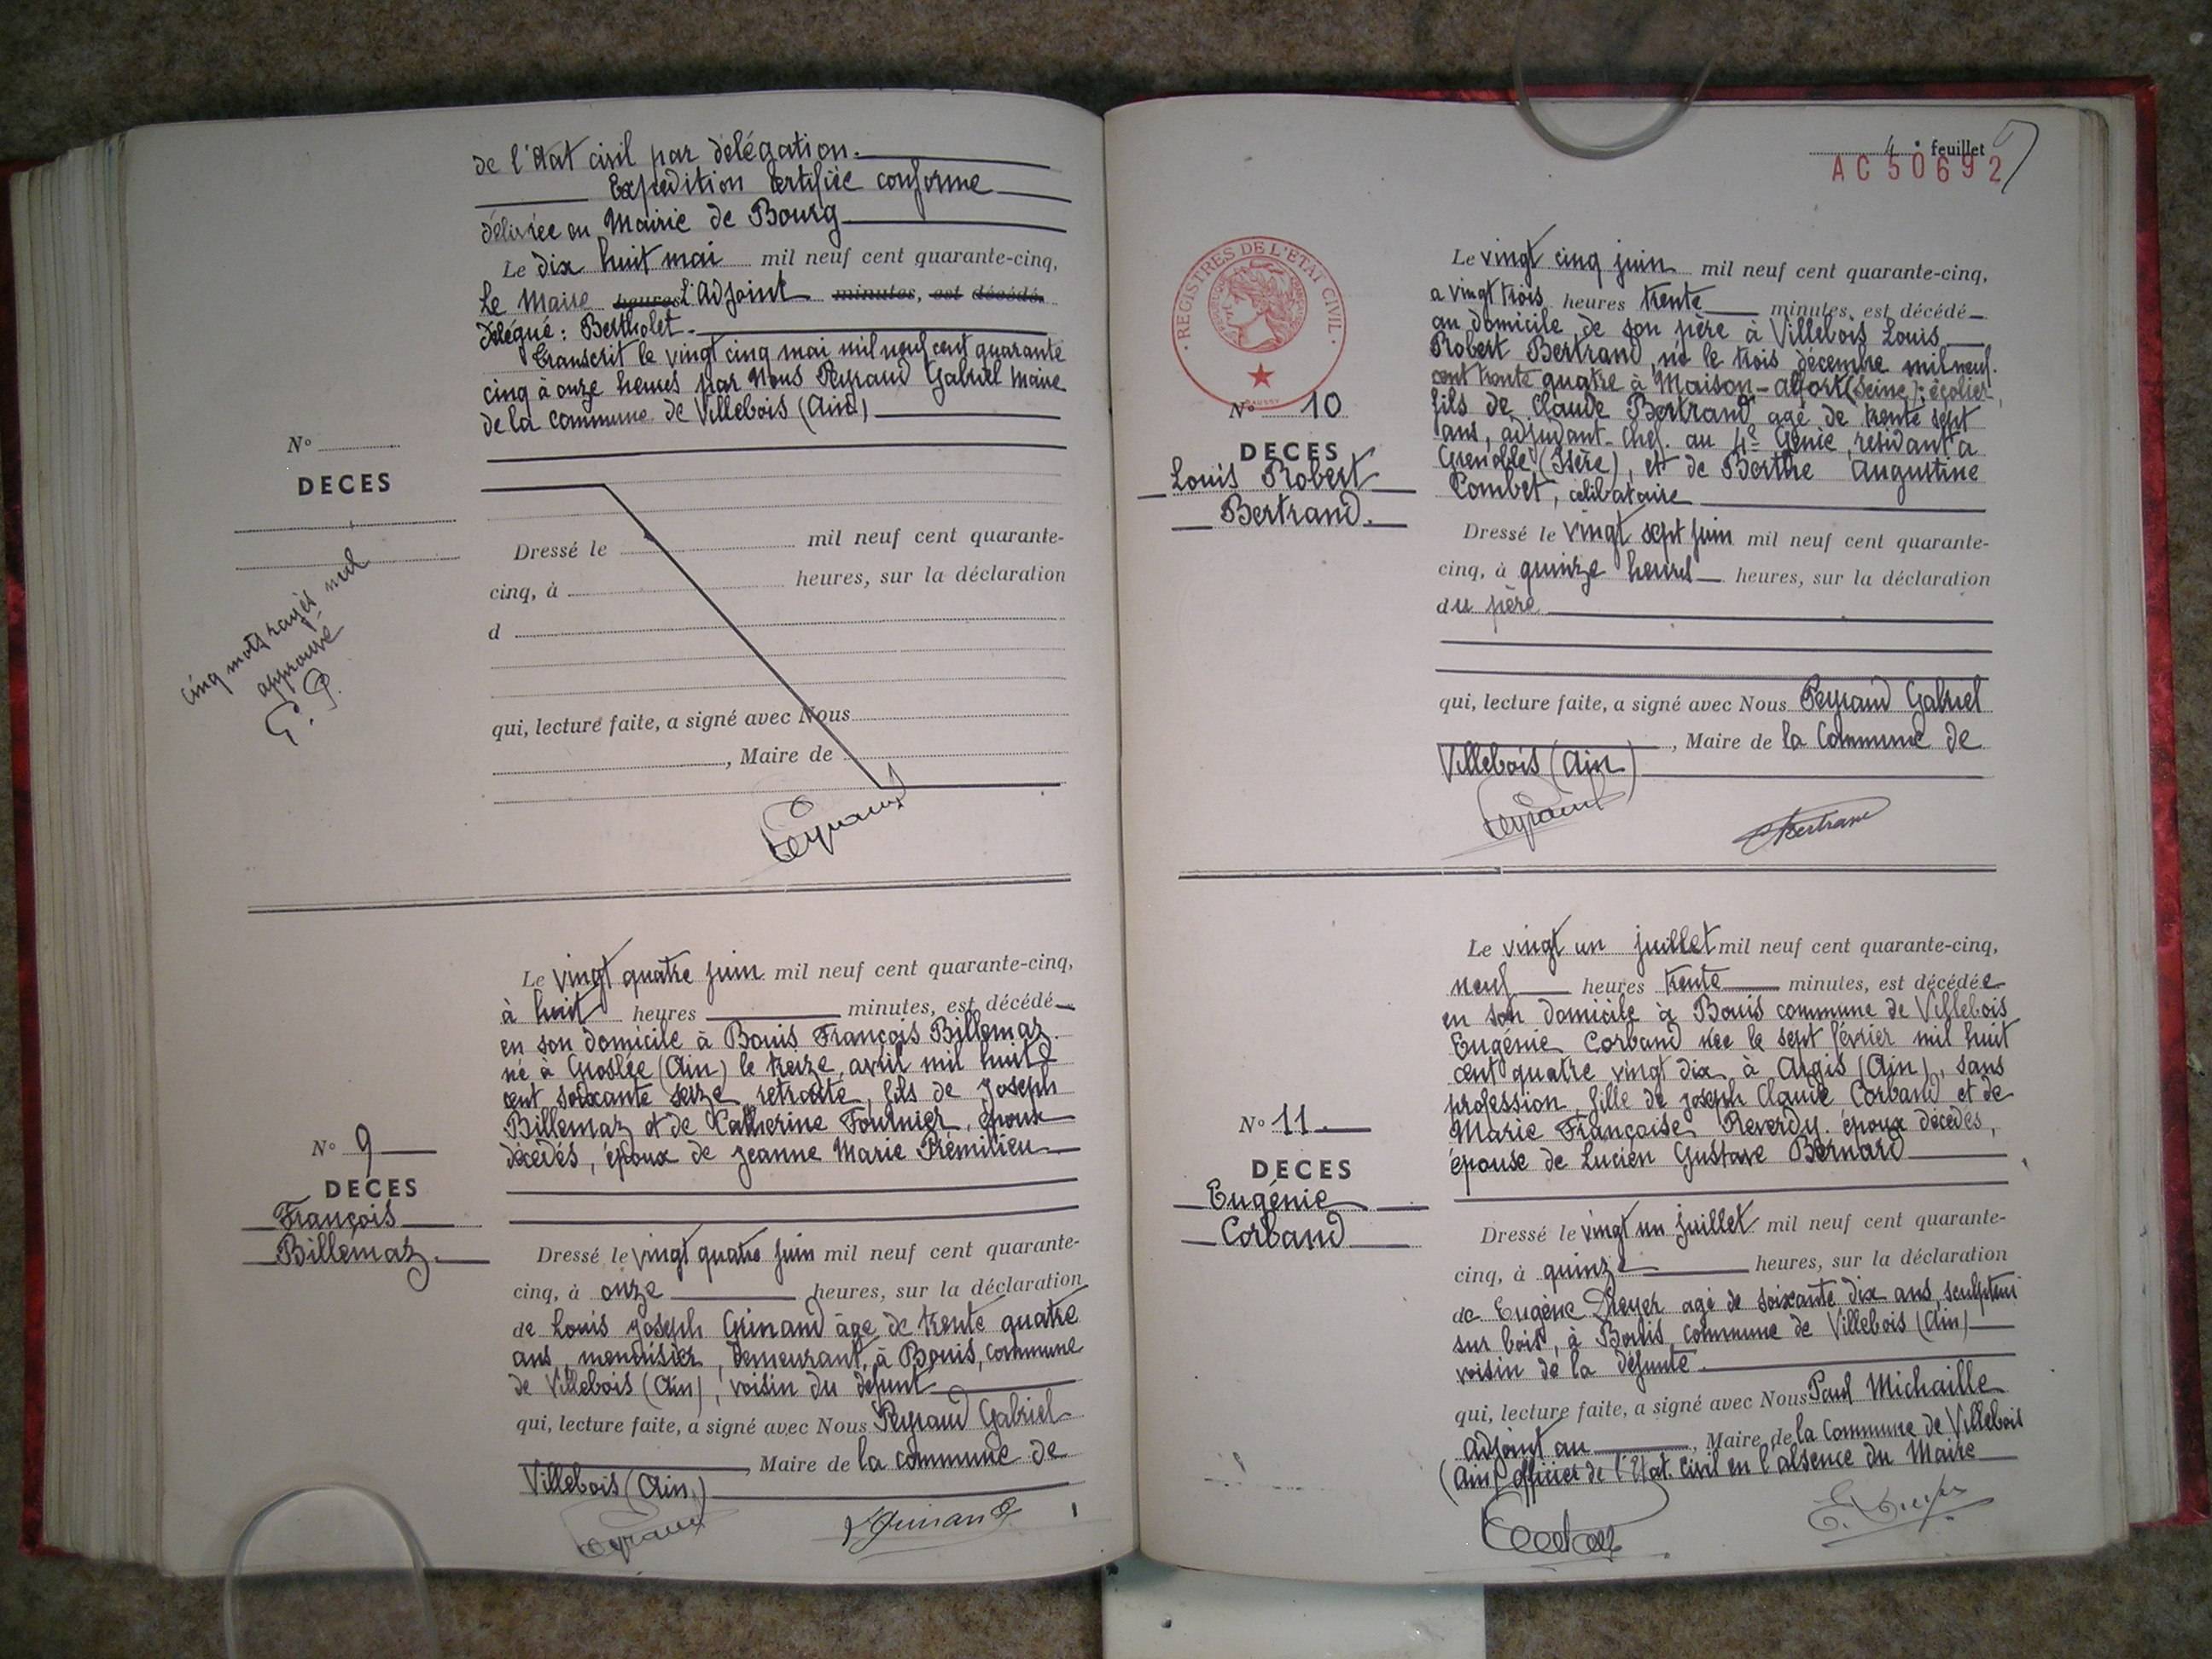 de l'Etat civil par délégation.
Expédition certifiée conforme
délivrée en Mairie de Bourg
Le dix huit mai mil neuf cent quarante-cinq,
Le Maire heures l'Adjoint minutes, est décédé
délégué : Bertholet.
Transcrit le vingt cinq mai mil neuf cent quarante
cinq à onze heures par Nous Peyraud Gabriel Maire
de la commune de Villebois (Ain)
N°
DECES
cinq mots rayés nul
approuvé
G. P.
Dressé le mil neuf cent quarante-
cinq, à heures, sur la déclaration
d
qui, lecture faite, a signé avec Nous
, Maire de
Peyraud
Le vingt quatre juin mil neuf cent quarante-cinq,
à huit heures minutes, est décédé
en son domicile à Bouis François Billemaz
né à Groslée (Ain) le treize avril mil huit
cent soixante seize, retraité, fils de Joseph
Billemaz et de Catherine Fournier, époux
décédés, époux de Jeanne Marie Prémilieu
N° 9
DECES
François
Billemaz.
Dressé le vingt quatre juin mil neuf cent quarante-
cinq, à onze heures, sur la déclaration
de Louis Joseph Grinand âgé de trente quatre
ans, menuisier, demeurant à Bouis, commune
de Villebois (Ain), voisin du défunt
qui, lecture faite, a signé avec Nous Peyraud Gabriel
, Maire de la commune de
Villebois (Ain)
Peyraud
Grinand
4e feuillet
AC 50692
REGISTRES DE L'ETAT CIVIL
Le vingt cinq juin mil neuf cent quarante-cinq,
a vingt trois heures trente minutes, est décédé
au domicile de son père à Villebois Louis
Robert Bertrand, né le trois décembre mil neuf
cent trente quatre à Maison-Alfort (Seine); écolier,
fils de Claude Bertrand agé de trente sept
ans, adjudant-chef au 4e Génie, résidant à
Grenoble (Isère), et de Berthe Augustine
Combet, célibataire
N° 10
DECES
Louis Robert
Bertrand.
Dressé le vingt sept juin mil neuf cent quarante-
cinq, à quinze heures heures, sur la déclaration
du père
qui, lecture faite, a signé avec Nous Peyraud Gabriel
, Maire de la Commune de
Villebois (Ain)
Peyraud
Bertrand
Le vingt un juillet mil neuf cent quarante-cinq,
neuf heures trente minutes, est décédée
en son domicile à Bouis commune de Villebois
Eugénie Corband née le sept février mil huit
cent quatre vingt dix à Argis (Ain), sans
profession, fille de Joseph Claude Corband et de
Marie Françoise Reverdy, époux décédés,
épouse de Lucien Gustave Bernard
N° 11.
DECES
Eugénie
Corband
Dressé le vingt un juillet mil neuf cent quarante-
cinq, à quinze heures, sur la déclaration
de Eugène Dreyer agé de soixante dix ans, sculpteur
sur bois, à Bouis, commune de Villebois (Ain)
voisin de la défunte.
qui, lecture faite, a signé avec Nous Paul Michaille
Adjoint au , Maire de la Commune de Villebois
(Ain) officier de l'Etat. Civil en l'absence du Maire
E. Dreyer